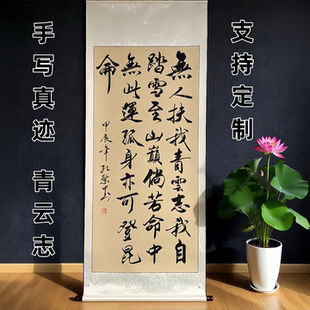 支持定制
無人扶我青雲志我自
踏雪至山巔倘若命中
無此運孤身亦可登昆
侖
甲辰年
手写真迹 青云志